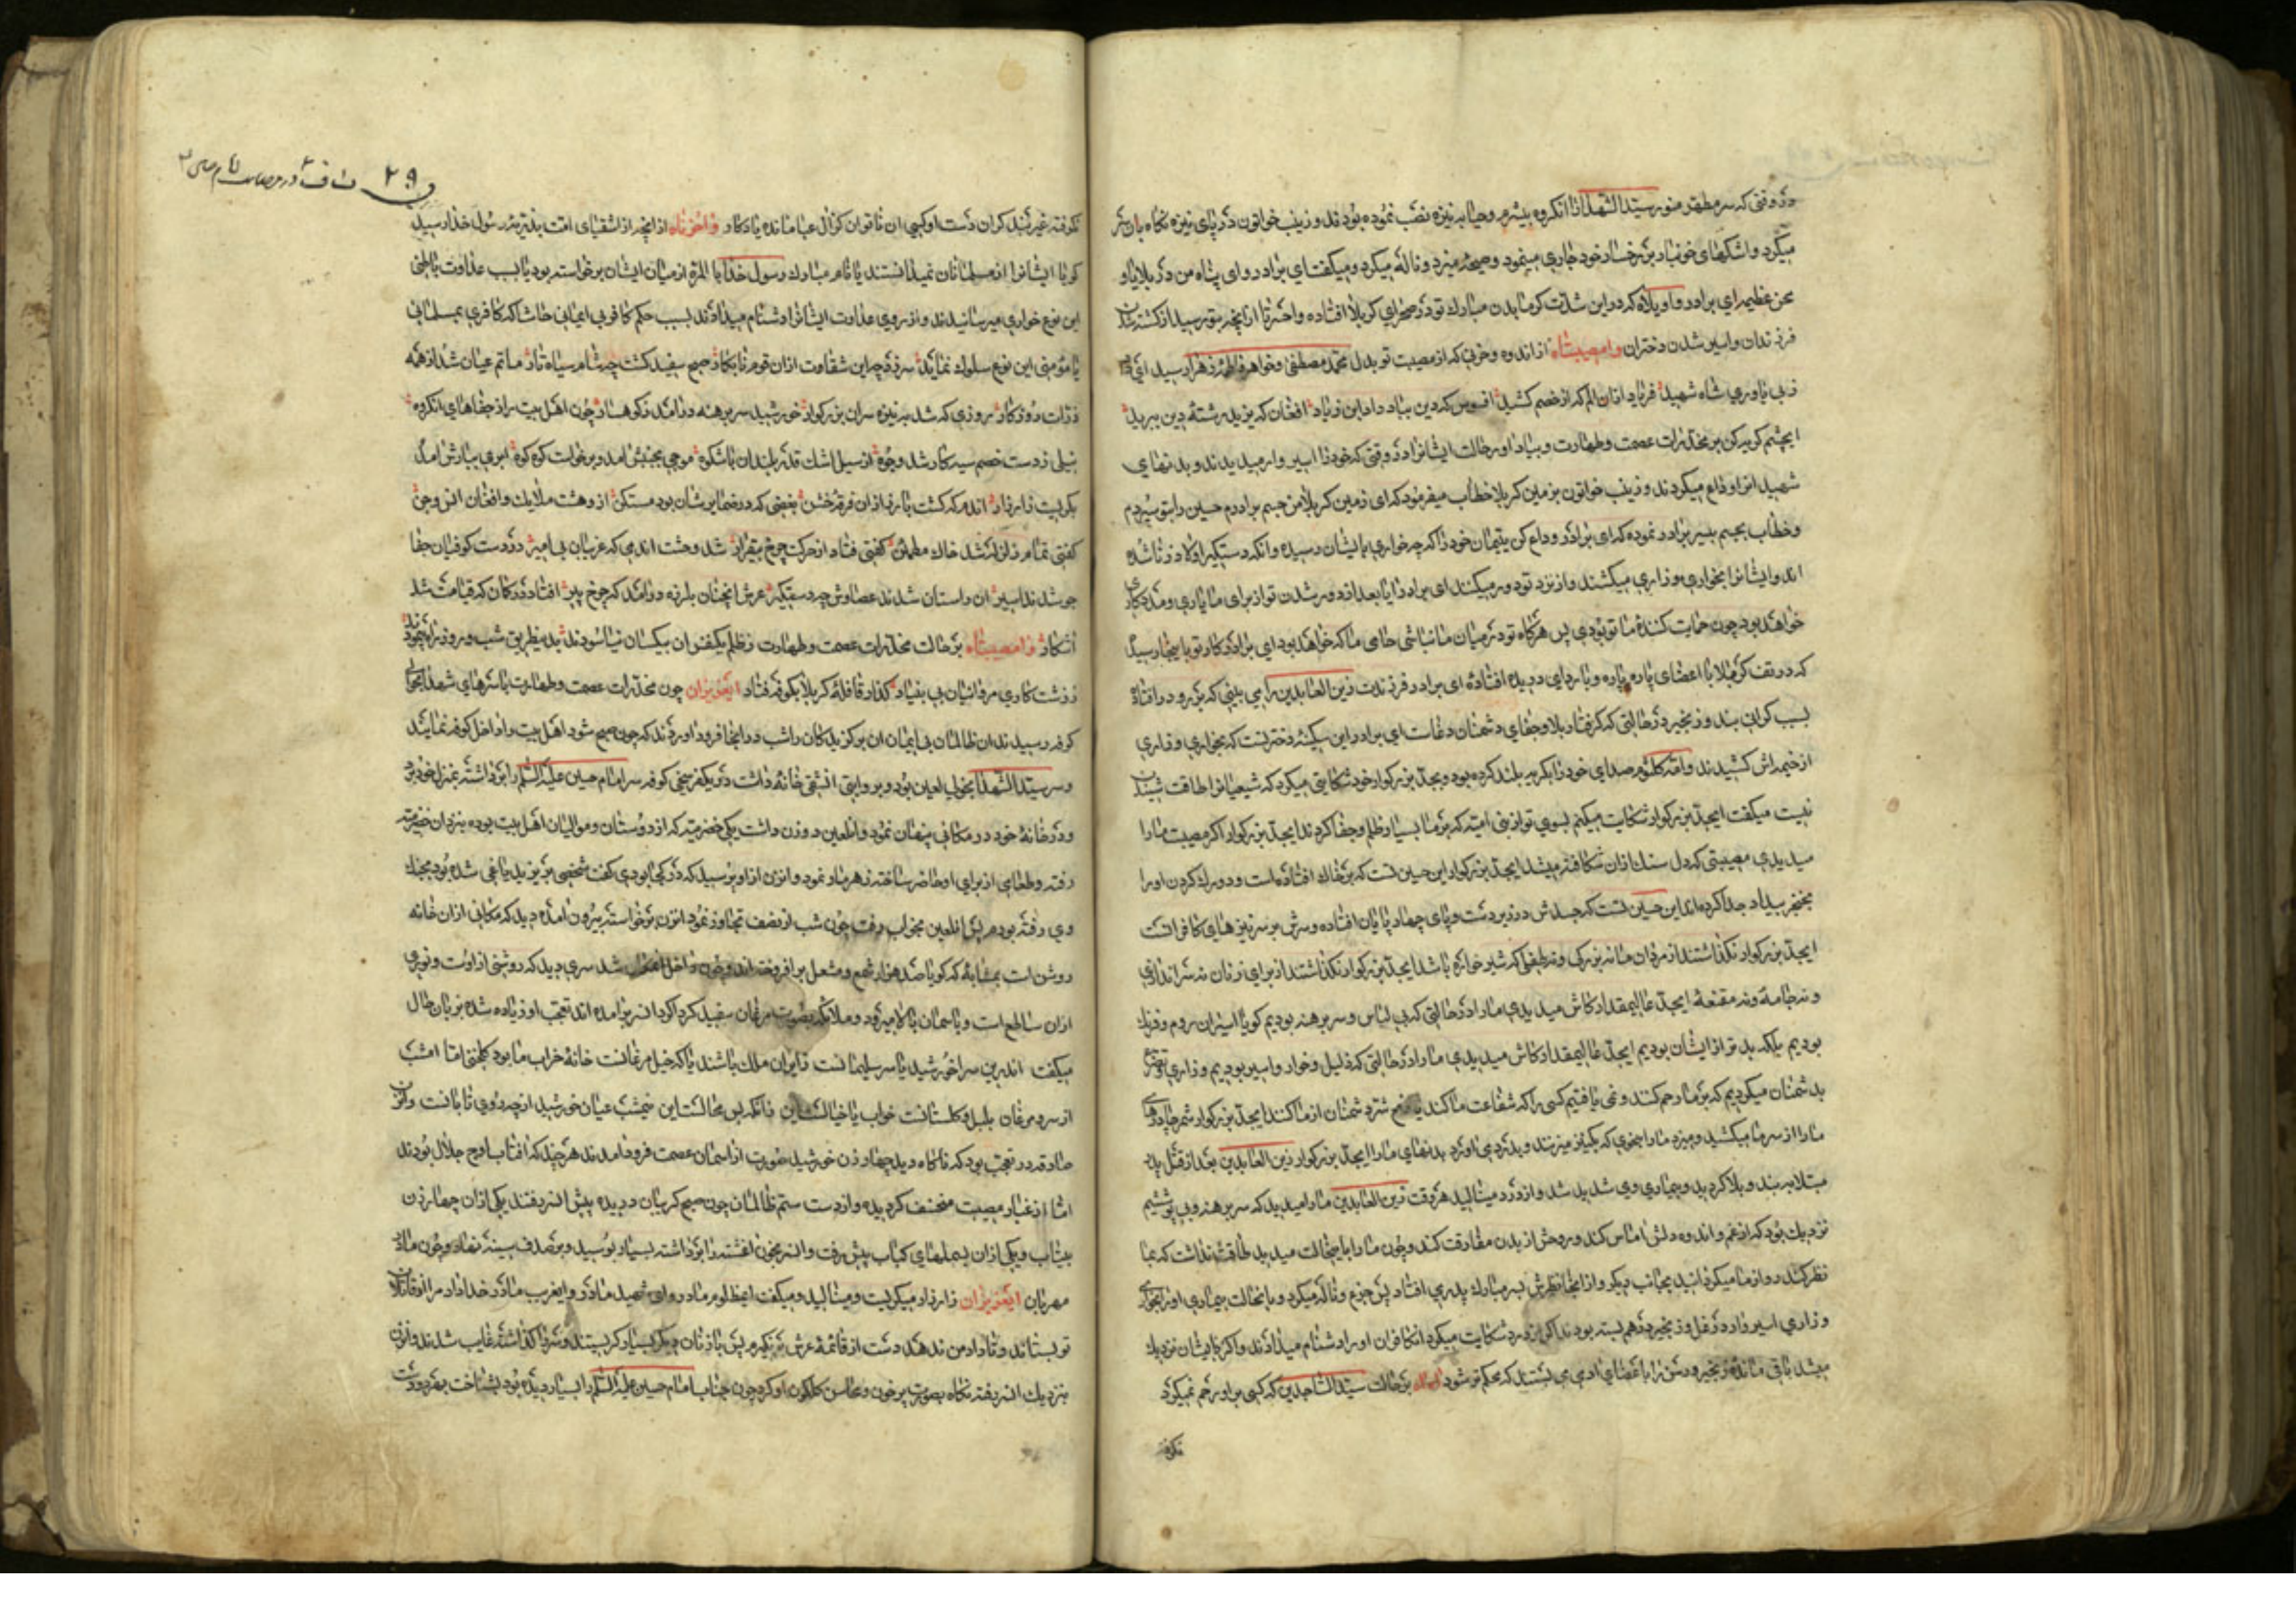 در وقتی که سر مطهر منور سید الشهدا را انکروه بیشرم و حیا بر نیزه نصب نموده بودند و زینب خواتون در پای نیزه نکاه بان سر
میکرد و اشکهای خونبار بر رخسار خود جاری مینمود و صیحه میزد و ناله میکرد و میکفت ای برادر و ای پناه من در بلایا و
محن عظیمه ای برادر واویلاه که در این شدت کرما بدن مبارك تو در صحرای کربلا افتاده واحسرتا از انچه بتو رسید از کشته شدن
فرزندان و اسیر شدن دختران وامصیبتاه از اندوه و حزنی که از مصیبت تو بدل محمد مصطفی و خواهر فاطمه زهرا رسید
ز بی یاوری شاه شهید فریاد ازان الم که از خصم کشید افسوس که دین بباد داد ابن زیاد افغان که یزید رشته دین ببرید
ایچشم کریه کن بر مخدرات عصمت و طهارت و بیاد اور حالت ایشانرا در وقتی که خود را اسیر وار میدیدند و بدنهای
شهیدانرا وداع میکردند و زینب خواتون بزمین کربلا خطاب میفرمود که ای زمین کربلا من جسم برادرم حسین را بتو سپردم
و خطاب بجسم بیسر برادر نموده که ای برادر وداع کن یتیمان خود را که چه خواری بایشان رسیده و انکه دستکیر اولاد زنا شده
اند و ایشانرا بخواری و زاری میکشند و از نزد تو دور میکنند ای برادر ایا بعد از دور شدن تو از برای ما یاری و مددکاری
خواهد بود چون حمایت کننده ما تو بودی پس هرکاه تو در میان ما نباشی حامی ما که خواهد بود ای برادر کار تو باینجا رسید
که در تف کربلا با اعضای پاره پاره و با ردای دریده افتاده ای برادر فرزندت زین العابدین را می بینی که بر رو در افتاده
بسبب کرانی بند و زنجیر در حالتی که کرفتار بلا و جفای دشمنان دغاست ای برادر این سکینه دختر تست که بخواری و زاری
از خیمه اش کشیدند و ام کلثوم صدای خود را بکریه بلند کرده بود و بجد بزرکوار خود شکایتی میکرد که شیعیانرا طاقت شنیدن
نیست میکفت ایجد بزرکوار شکایت میکنم بسوی تو از بنی امیه که بر ما بسیار ظلم و جفا کردند ایجد بزرکوار اکر مصیبت ما را
میدیدی مصیبتی که دل سنك ازان شکافته میشد ایجد بزرکوار این حسین تست که بر خاك افتاده است و دور رك کردن او را
بخنجر بیداد جدا کرده اند این حسین تست که جسدش در زیر دست و پای چهارپایان افتاده و سرش بر سر نیزهای کافرانست
ایجد بزرکوار نکذاشتند از مردان ما نه بزرکی و نه طفلی که شیر خواره باشد ایجد بزرکوار نکذاشتند از برای زنان نه سر اندازی
و نه جامه و نه مقنعه ایجد عالیمقدار کاش میدیدی ما را در حالتی که بی لباس و سر برهنه بودیم کویا اسیران روم و فرنك
بودیم بلکه بدتر از ایشان بودیم ایجد عالیمقدار کاش میدیدی ما را در حالتی که ذلیل و خوار و اسیر بودیم و زاری و تضرع
بدشمنان میکردیم که بر ما رحم کنند و نمی یافتیم کسی را که شفاعت ما کند یا دفع شر دشمنان از ما کند ایجد بزرکوار شمر چادرهای
ما را از سر ما میکشید و میزد ما را بنحوی که بکنیز میزنند و بدرد می اورد بدنهای ما را ایجد بزرکوار زین العابدین بعد از قتل پدر
مبتلا به بند و بلا کردید و بیماری وی شدید شد و از درد مینالید هر وقت زین العابدین ما را میدید که سر برهنه و بی پوششیم
نزدیك بود که از غم و اندوه دلش اماس کند و روحش از بدن مفارقت کند و چون ما را باینحالت میدید طاقت نداشت که بما
نظر کند رو از ما میکردانید بجانب دیکر و از انجا نظرش بسر مبارك پدر می افتاد پس جزع و ناله میکرد و با انحالت بیماری او را بخواری
و زاری اسیر وار در غل و زنجیر در هم بسته بودند اکر از درد شکایت میکرد انکافران او را دشنام میدادند و اکر بایشان نزدیك
میشد باقی مانده زنجیر و رسن را باعضای ادمی می بستند که محکم تر شود بر حالت سید الساجدین که کسی بر او رحم نمیکرد
نکرفته
۲۹
نکرفته غیر بند کران دست او کسی ان ناتوان کزال عبا مانده یادکار واحزناه از انچه از اشقیای امت بذریه رسول خدا رسید
کویا ایشانرا از مسلمانان نمیدانستند یا نام مبارك رسول خدا بالمره از میان ایشان برخواسته بود یا بسبب عداوت باطنی
این نوع خواری میرسانیدند و از روی عداوت ایشانرا دشنام میدادند بسبب حکم کافر بی ایمانی حاشا که کافری بمسلمانی
یا مؤمنی این نوع سلوك نماید سر زد چه این شقاوت ازان قوم نابکار صبح سفید کشت چه شام سیاه تار ماتم عیان شد از همه
ذرات روزکار روزی که شد به نیزه سر ان بزرکوار خورشید سر برهنه در امد ز کوهسار چون اهل بیت را ز جفاهای انکروه
نیلی ز دست خصم سیه کار شد وجوه از سیل اشك قدر بلندان باشکوه موجی بجنبش امد و برخواست کوه کوه ابری ببارش امد
بکریست زار زار اندم که کشت پاره ازان فرقه خشن بغضی که در ضمایرشان بود مستکن از وهشت ملایك و افغان انس و جن
کفتی تمام زلزله شد خاك مطمئن کفتی فتاد از حرکت چرخ بیقرار شد وحشت اندمی که غریبان بی امیر در دست کوفیان جفا
جو شدند اسیر ان راستان شدند عصاوش چه دستکیر عرش انچنان بلرزه درامد که چرخ پیر افتاد در کمان که قیامت شد
اشکار وامصیبتاه بر حالت مخدرات عصمت و طهارت ز ظلم یکنفر ان بیکسان نیاسودند بدینطریق شب و روز راه پیمودند
ز زشت کاری مروانیان بی بنیاد کذار قافله کربلا بکوفه فتاد ایعزیزان چون مخدرات عصمت و طهارت با سرهای شهدا بحوالی
کوفه رسیدند ان ظالمان بی ایمان ان برکزیدکان را شب در انجا فرود اوردند که چون صبح شود اهل بیت را داخل کوفه نمایند
و سر سید الشهدا بخولی لعین بود و بروایتی ان شقی خانه داشت در یکفرسخی کوفه سر امام حسین علیه السلام را برداشته بمنزل خود برد
و در خانه خود در مکانی پنهان نمود و انلعین دو زن داشت یکی خضرمیه که از دوستان و موالیان اهل بیت بوده بنزد ان خضرمیه
رفته و طعامی از برای او حاضر ساخته زهرمار نمود و انزن از او پرسید که در کجا بودی کفت شخصی بر یزید یاغی شده بود بجنك
وی رفته بودم پس انلعین بخواب رفت چون شب از نصف تجاوز نمود انزن برخواسته بیرون امده دید که مکانی ازان خانه
روشن است بمثابه که کویا صد هزار شمع و مشعل بر افروخته اند و چون داخل شد سری دید که روشنی از اوست و نوری
ازان ساطع است و باسمان بالا میرود و ملائکه بصورت مرغان سفید کرداکرد ان سر برامده اند تعجب او زیاده شده بزبان حال
میکفت اندرین سرا خورشید یا سر سلیمانست زایران ملك باشند یا که خیل مرغانست خانه خراب ما بود کلخنی اما امشب
از سر و مرغان بلبل و کلستانست خواب یا خیالست این زانکه بس محالست این نیمشب عیان خورشید از چه روی تابانست
صادقه در تعجب بود که ناکاه دید چهار زن خورشید صورت از اسمان عصمت فرود امدند هر چند که افتاب اوج جلال بودند
اما از غبار مصیبت منخسف کردیده و از دست ستم ظالمان چون صبح کریبان دریده پیش ان سر رفتند یکی ازان چهار زن
بیتاب و یکی ازان بسملهای کباب پیش رفت و ان سر بخون اغشته را برداشته بسیار بوسید و بر صدف سینه نهاد و چون مادر
مهربان ایعزیزان زار زار میکریست و مینالید و میکفت ایمظلوم مادر و ای شهید مادر و ایغریب مادر خدا داد مرا از قاتلان
تو بستاند و تا داد من ندهد دست از قائمه عرش بر نکیرم پس با زنان دیکر بسیار کریستند و سر را کذاشته غایب شدند و انزن
بنزدیك ان سر رفته نکاه بصورت پر خون و محاسن کلکون او کرده چون جناب امام حسین علیه السلام را بسیار دیده بود بشناخت